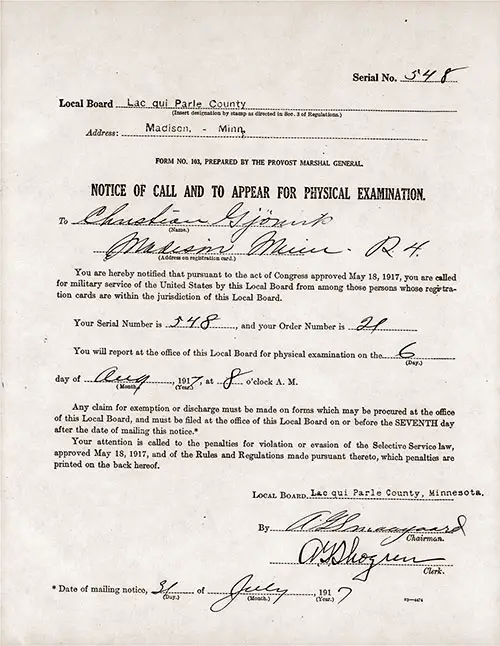 Serial No. 548
Local Board Lac qui Parle County
(Insert designation by stamp as directed in Sec. 3 of Regulations.)
Address: Madison, - Minn,
FORM NO. 103, PREPARED BY THE PROVOST MARSHAL GENERAL.
NOTICE OF CALL AND TO APPEAR FOR PHYSICAL EXAMINATION.
To Christian
(Name.)
Madison Minn. R 4.
(Address on registration card.)
You are hereby notified that pursuant to the act of Congress approved May 18, 1917, you are called
for military service of the United States by this Local Board from among those persons whose registra-
tion cards are within the jurisdiction of this Local Board.
Your Serial Number is 548, and your Order Number is 21
You will report at the office of this Local Board for physical examination on the 6
(Day.)
day of Aug, 1917, at 8 o'clock A. M.
(Month.) (Year.)
Any claim for exemption or discharge must be made on forms which may be procured at the office
of this Local Board, and must be filed at the office of this Local Board on or before the SEVENTH day
after the date of mailing this notice.*
Your attention is called to the penalties for violation or evasion of the Selective Service law,
approved May 18, 1917, and of the Rules and Regulations made pursuant thereto, which penalties are
printed on the back hereof.
LOCAL BOARD, Lac qui Parle County, Minnesota.
By
Chairman.
Clerk.
* Date of mailing notice, 31 of July, 1917
(Day.) (Month.) (Year.)